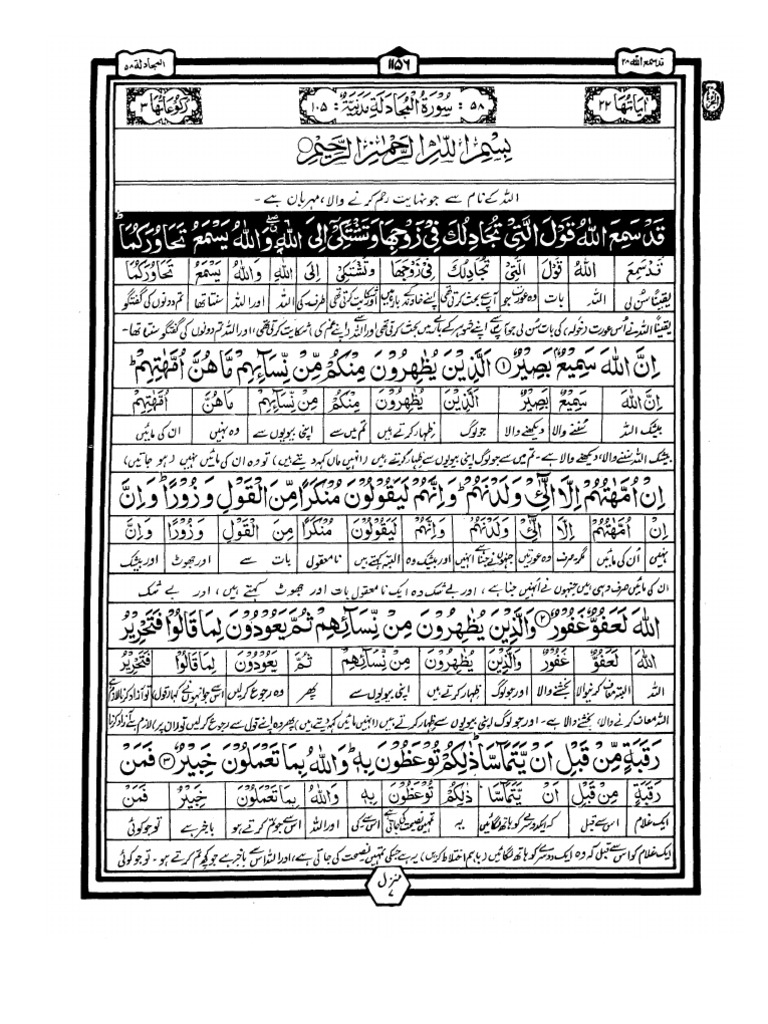 قد سمع اللہ ۲۸
۱۱۵۶
المجادلۃ ۵۸
اٰیَاتُهَا ۲۲
۵۸: سُوْرَةُ الْمُجَادَلَةِ مَدَنِيَّةٌ: ۱۰۵
رُكُوْعَاتُهَا ۳
بِسْمِ اللّٰهِ الرَّحْمٰنِ الرَّحِيْمِ
اللہ کے نام سے جو نہایت رحم کرنے والا، مہربان ہے۔
قَدْ سَمِعَ اللّٰهُ قَوْلَ الَّتِيْ تُجَادِلُكَ فِيْ زَوْجِهَا وَتَشْتَكِيْٓ اِلَى اللّٰهِ ۖ وَاللّٰهُ يَسْمَعُ تَحَاوُرَكُمَا ؕ
قَدْ سَمِعَ اللّٰهُ قَوْلَ الَّتِيْ تُجَادِلُكَ فِيْ زَوْجِهَا وَتَشْتَكِيْ اِلَى اللّٰهِ وَاللّٰهُ يَسْمَعُ تَحَاوُرَكُمَا
یقیناً سن لی اللہ بات وہ عورت جو آپ سے بحث کرتی تھی اپنے خاوند کے بارے میں اور شکایت کرتی تھی طرف۔ کی اللہ اور اللہ سنتا تھا تم دونوں کی گفتگو
یقیناً اللہ نے اُس عورت (خولہ) کی بات سن لی جو آپ سے اپنے شوہر کے بارے میں بحث کرتی تھی اور اللہ سے شکایت کرتی تھی، اور اللہ تم دونوں کی گفتگو سنتا تھا۔
اِنَّ اللّٰهَ سَمِيْعٌۢ بَصِيْرٌ ۱ اَلَّذِيْنَ يُظٰهِرُوْنَ مِنْكُمْ مِّنْ نِّسَآىِٕهِمْ مَّا هُنَّ اُمَّهٰتِهِمْ ؕ
اِنَّ اللّٰهَ سَمِيْعٌ بَصِيْرٌ الَّذِيْنَ يُظٰهِرُوْنَ مِنْكُمْ مِنْ نِّسَآىِٕهِمْ مَا هُنَّ اُمَّهٰتِهِمْ
بیشک اللہ سننے والا دیکھنے والا جو لوگ ظہار کرتے ہیں تم میں سے اپنی بیویوں سے وہ نہیں ان کی مائیں
بیشک اللہ سننے والا، دیکھنے والا ہے۔ تم میں سے جو لوگ اپنی بیویوں سے ظہار کرتے ہیں (انہیں ماں کہہ دیتے ہیں) تو وہ ان کی مائیں نہیں (ہو جاتیں)،
اِنْ اُمَّهٰتُهُمْ اِلَّا الّٰٓـِٔيْ وَلَدْنَهُمْ ؕ وَاِنَّهُمْ لَيَقُوْلُوْنَ مُنْكَرًا مِّنَ الْقَوْلِ وَزُوْرًا ؕ وَاِنَّ
اِنْ اُمَّهٰتُهُمْ اِلَّا الّٰٓـِٔيْ وَلَدْنَهُمْ وَاِنَّهُمْ لَيَقُوْلُوْنَ مُنْكَرًا مِنَ الْقَوْلِ وَزُوْرًا وَاِنَّ
نہیں اُن کی مائیں مگر صرف وہ عورتیں جنہوں نے جنا ہے انہیں اور بیشک وہ البتہ کہتے ہیں نامعقول بات سے اور جھوٹ اور بیشک
ان کی مائیں صرف وہی ہیں جنہوں نے اُنہیں جنا ہے، اور بے شک وہ ایک نامعقول بات اور جھوٹ کہتے ہیں، اور بے شک
اللّٰهَ لَعَفُوٌّ غَفُوْرٌ ۲ وَالَّذِيْنَ يُظٰهِرُوْنَ مِنْ نِّسَآىِٕهِمْ ثُمَّ يَعُوْدُوْنَ لِمَا قَالُوْا فَتَحْرِيْرُ
اللّٰهَ لَعَفُوٌّ غَفُوْرٌ وَالَّذِيْنَ يُظٰهِرُوْنَ مِنْ نِّسَآىِٕهِمْ ثُمَّ يَعُوْدُوْنَ لِمَا قَالُوْا فَتَحْرِيْرُ
اللہ البتہ معاف کرنیوالا بخشنے والا اور جو لوگ ظہار کرتے ہیں اپنی بیویوں سے پھر وہ رجوع کرلیں اس سے جو انہوں نے کہا (قول) تو آزاد کرنا لازم ہے
اللہ معاف کرنے والا، بخشنے والا ہے۔ اور جو لوگ اپنی بیویوں سے ظہار کرتے ہیں (انہیں مائیں کہہ دیتے ہیں) پھر وہ اپنے قول سے رجوع کرلیں تو ان پر لازم ہے آزاد کرنا
رَقَبَةٍ مِّنْ قَبْلِ اَنْ يَّتَمَآسَّا ؕ ذٰلِكُمْ تُوْعَظُوْنَ بِهٖ ؕ وَاللّٰهُ بِمَا تَعْمَلُوْنَ خَبِيْرٌ ۳ فَمَنْ
رَقَبَةٍ مِنْ قَبْلِ اَنْ يَّتَمَآسَّا ذٰلِكُمْ تُوْعَظُوْنَ بِهٖ وَاللّٰهُ بِمَا تَعْمَلُوْنَ خَبِيْرٌ فَمَنْ
ایک غلام اس سے قبل کہ ایک دوسرے کو ہاتھ لگائیں یہ تمہیں نصیحت کی جاتی ہے اس کی اور اللہ اس سے جو تم کرتے ہو باخبر ہے تو جو کوئی
ایک غلام کو اس سے قبل کہ وہ ایک دوسرے کو ہاتھ لگائیں (باہم اختلاط کریں)، یہ ہے جسکی تمہیں نصیحت کی جاتی ہے، اور اللہ اس سے باخبر ہے جو کچھ تم کرتے ہو۔ تو جو کوئی
منزل ۷